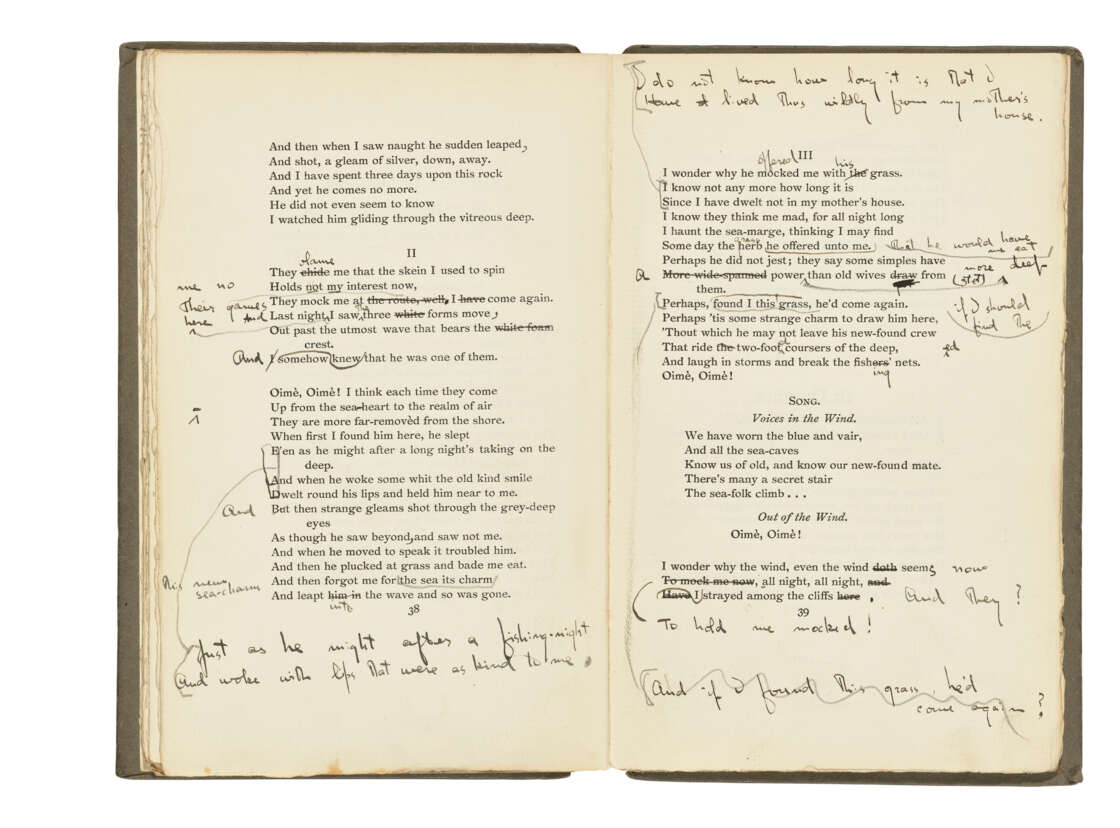 And then when I saw naught he sudden leaped,
And shot, a gleam of silver, down, away.
And I have spent three days upon this rock
And yet he comes no more.
He did not even seem to know
I watched him gliding through the vitreous deep.
II
blame
They chide me that the skein I used to spin
me no
Holds not my interest now,
Their games
They mock me at the route, well, I have come again.
here And
Last night, I saw the three white forms move,
Out past the utmost wave that bears the white foam
crest.
And
I somehow knew that he was one of them.
Oimè, Oimè! I think each time they come
Up from the sea-heart to the realm of air
They are more far-removèd from the shore.
When first I found him here, he slept
E'en as he might after a long night's taking on the
deep.
And when he woke some whit the old kind smile
Dwelt round his lips and held him near to me.
And
But then strange gleams shot through the grey-deep
eyes
As though he saw beyond, and saw not me.
And when he moved to speak it troubled him.
And then he plucked at grass and bade me eat.
This new sea-charm
And then forgot me for the sea its charm
And leapt him in the wave and so was gone.
into
38
Just as he might after a fishing-night
And woke with lips that were as kind to me.
I do not know how long it is that I
Have lived thus wildly from my mother's
house.
III
offered his
I wonder why he mocked me with the grass.
I know not any more how long it is
Since I have dwelt not in my mother's house.
I know they think me mad, for all night long
I haunt the sea-marge, thinking I may find
grass
Some day the herb he offered unto me.
that he would have me eat
Perhaps he did not jest; they say some simples have
more deep
(stet)
A
More wide-spanned power, than old wives draw from
them.
Perhaps, found I this grass, he'd come again.
if I should find the
Perhaps 'tis some strange charm to draw him here,
'Thout which he may not leave his new-found crew
That ride the two-footed coursers of the deep,
And laugh in storms and break the fishers' nets.
ed
ing
Oimè, Oimè!
SONG.
Voices in the Wind.
We have worn the blue and vair,
And all the sea-caves
Know us of old, and know our new-found mate.
There's many a secret stair
The sea-folk climb . . .
Out of the Wind.
Oimè, Oimè!
I wonder why the wind, even the wind doth seems now
To mock me now, all night, all night, and
Have I strayed among the cliffs here, And they?
39
To hold me mocked!
And if I found this grass, he'd
come again?